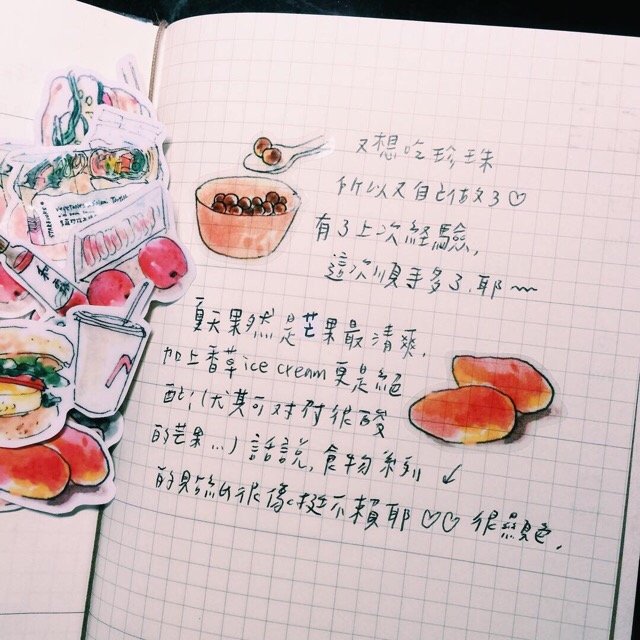 又想吃珍珠
所以又自己做了♡
有了上次經驗,
這次順手多了,耶~
夏天果然是芒果最清爽,
加上香草ice cream更是絕
配!(尤其可對付很酸
的芒果...)話說,食物系列↙
的貼紙很像挺不賴耶♡♡很顯色.